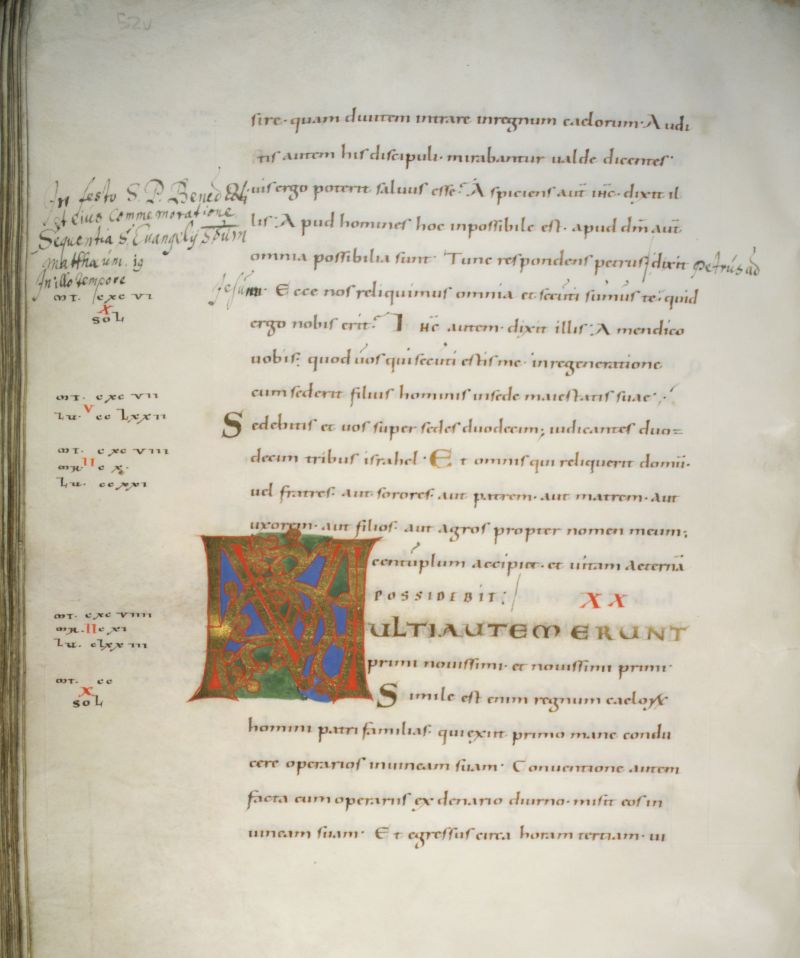 52v
sire· quam diuitem intrare inregnum caelorum· Audi
tis autem his discipuli· mirabantur ualde dicentes·
quis ergo poterit saluus esse? Aspiciens aut ihc· dixit il
lis· Apud homines hoc inpossibile est· apud dm aut
omnia possibilia sunt· Tunc respondens petrus dixit petrus ad
Jesum· Ecce nos reliquimus omnia et secuti sumus te· quid
ergo nobis erit? Ihc autem· dixit illis· Amen dico
uobis· quod uos qui secuti estis me· inregeneratione
cum sederit filius hominis insede maiestatis suae·
Sedebitis et uos super sedes duodecim; iudicantes duo
decim tribus israhel· Et omnis qui reliquerit domu·
uel fratres· aut sorores· aut patrem· aut matrem· aut
uxorem· aut filios· aut agros propter nomen meum;
centuplum accipiet· et uitam aeterna
POSSIDEBIT; XX
MULTI AUTEM ERUNT
primi nouissimi· et nouissimi primi·
Simile est enim regnum caeloꝝ
homini patri familias· qui exiit primo mane condu
cere operarios in uineam suam· Conuentione autem
facta cum operariis ex denario diurno· misit eos in
uineam suam· Et egressus circa horam tertiam· ui
In festo S. P. Bened
et eius Commemoratione
Sequentia S. Euangelij Spum
Matthæum. 19
In illo tempore
MT· cxc VI
X
SOL
MT· cxc VII
V
LU· cc Lxxii
MT· cxc VIII
MR· II c x·
LU· ccxxi
MT· cxc VIIII
MR· II cxi
LU· cLxx iii
MT· cc
X
SOL